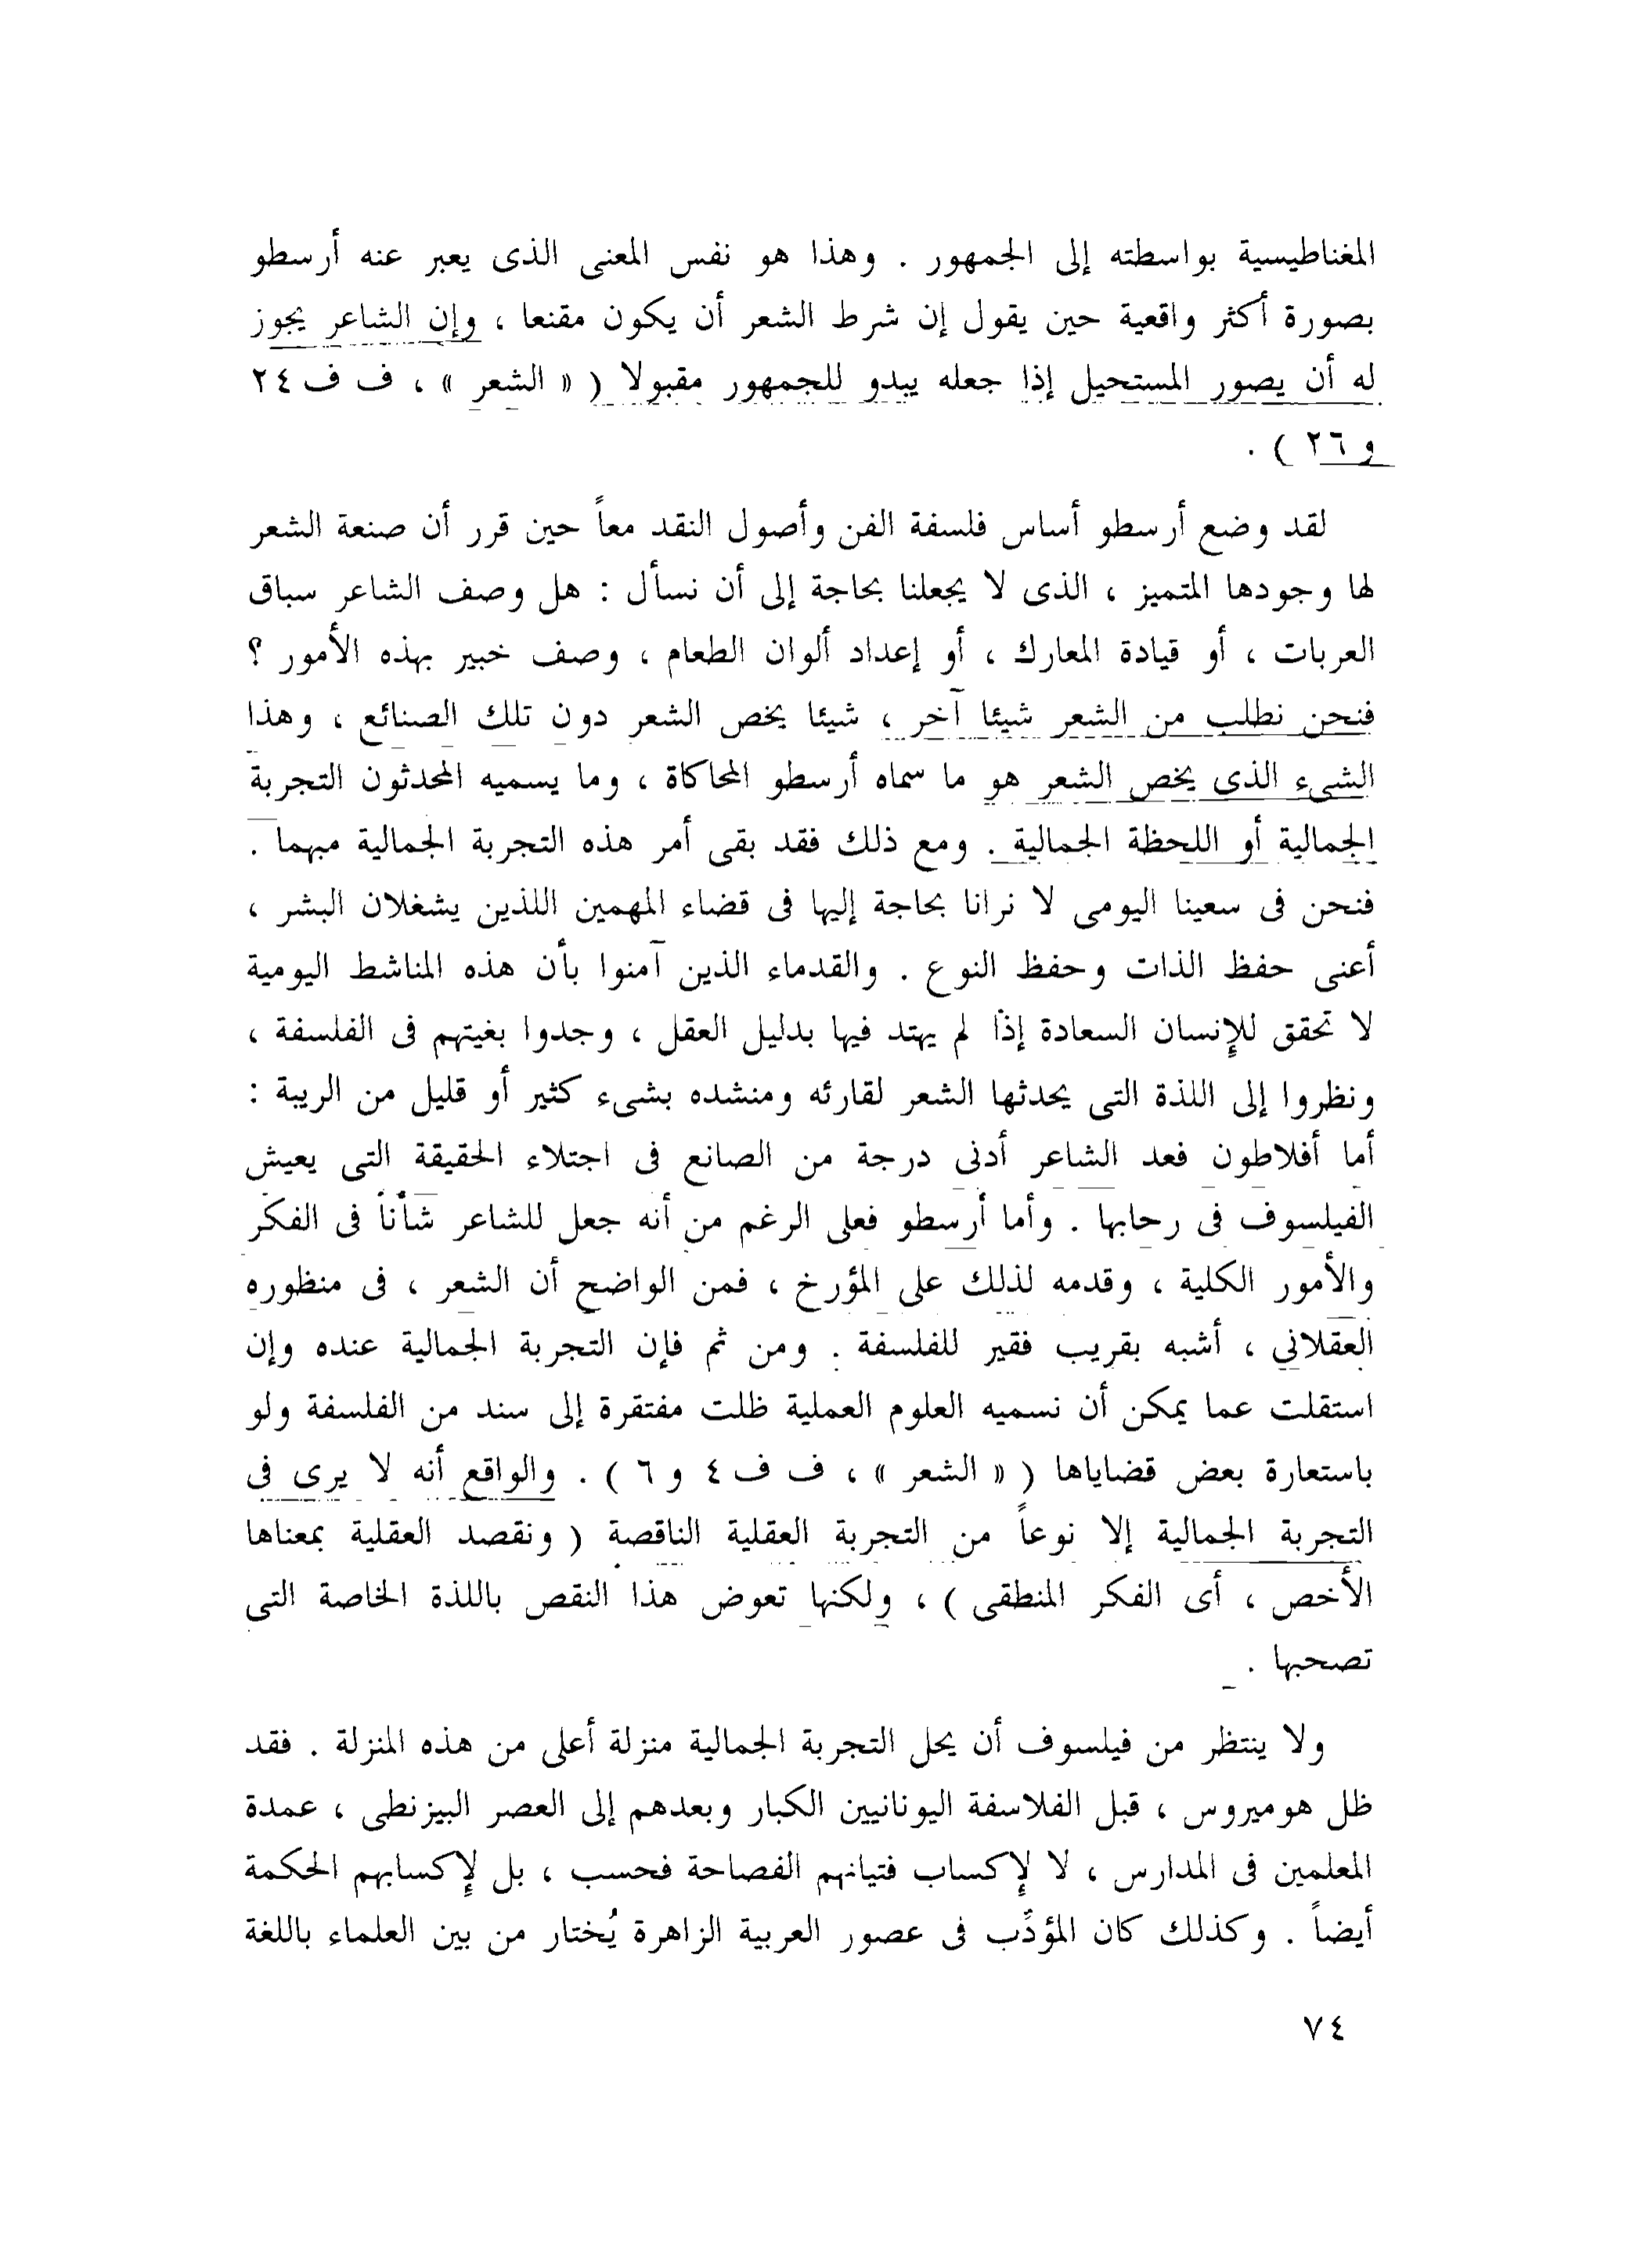 المغناطيسية بواسطته إلى الجمهور . وهذا هو نفس المعنى الذى يعبر عنه أرسطو
بصورة أكثر واقعية حين يقول إن شرط الشعر أن يكون مقنعا ، وإن الشاعر يجوز
له أن يصور المستحيل إذا جعله يبدو للجمهور مقبولا ( « الشعر » ، ف ف ٢٤
و ٢٦ ) .
لقد وضع أرسطو أساس فلسفة الفن وأصول النقد معاً حين قرر أن صنعة الشعر
لها وجودها المتميز ، الذى لا يجعلنا بحاجة إلى أن نسأل : هل وصف الشاعر سباق
العربات ، أو قيادة المعارك ، أو إعداد ألوان الطعام ، وصف خبير بهذه الأمور ؟
فنحن نطلب من الشعر شيئا آخر ، شيئا يخص الشعر دون تلك الصنائع ، وهذا
الشىء الذى يخص الشعر هو ما سماه أرسطو المحاكاة ، وما يسميه المحدثون التجربة
الجمالية أو اللحظة الجمالية . ومع ذلك فقد بقى أمر هذه التجربة الجمالية مبهما .
فنحن فى سعينا اليومى لا نرانا بحاجة إليها فى قضاء المهمين اللذين يشغلان البشر ،
أعنى حفظ الذات وحفظ النوع . والقدماء الذين آمنوا بأن هذه المناشط اليومية
لا تحقق للإنسان السعادة إذا لم يهتد فيها بدليل العقل ، وجدوا بغيتهم فى الفلسفة ،
ونظروا إلى اللذة التى يحدثها الشعر لقارئه ومنشده بشىء كثير أو قليل من الريبة :
أما أفلاطون فعد الشاعر أدنى درجة من الصانع فى اجتلاء الحقيقة التى يعيش
الفيلسوف فى رحابها . وأما أرسطو فعلى الرغم من أنه جعل للشاعر شأناً فى الفكر
والأمور الكلية ، وقدمه لذلك على المؤرخ ، فمن الواضح أن الشعر ، فى منظوره
العقلاني ، أشبه بقريب فقير للفلسفة . ومن ثم فإن التجربة الجمالية عنده وإن
استقلت عما يمكن أن نسميه العلوم العملية ظلت مفتقرة إلى سند من الفلسفة ولو
باستعارة بعض قضاياها ( « الشعر » ، ف ف ٤ و ٦ ) . والواقع أنه لا يرى فى
التجربة الجمالية إلا نوعاً من التجربة العقلية الناقصة ( ونقصد العقلية بمعناها
الأخص ، أى الفكر المنطقى ) ، ولكنها تعوض هذا النقص باللذة الخاصة التى
تصحبها .
ولا ينتظر من فيلسوف أن يحل التجربة الجمالية منزلة أعلى من هذه المنزلة . فقد
ظل هوميروس ، قبل الفلاسفة اليونانيين الكبار وبعدهم إلى العصر البيزنطى ، عمدة
المعلمين فى المدارس ، لا لإكساب فتيانهم الفصاحة فحسب ، بل لإكسابهم الحكمة
أيضاً . وكذلك كان المؤدِّب فى عصور العربية الزاهرة يُختار من بين العلماء باللغة
٧٤